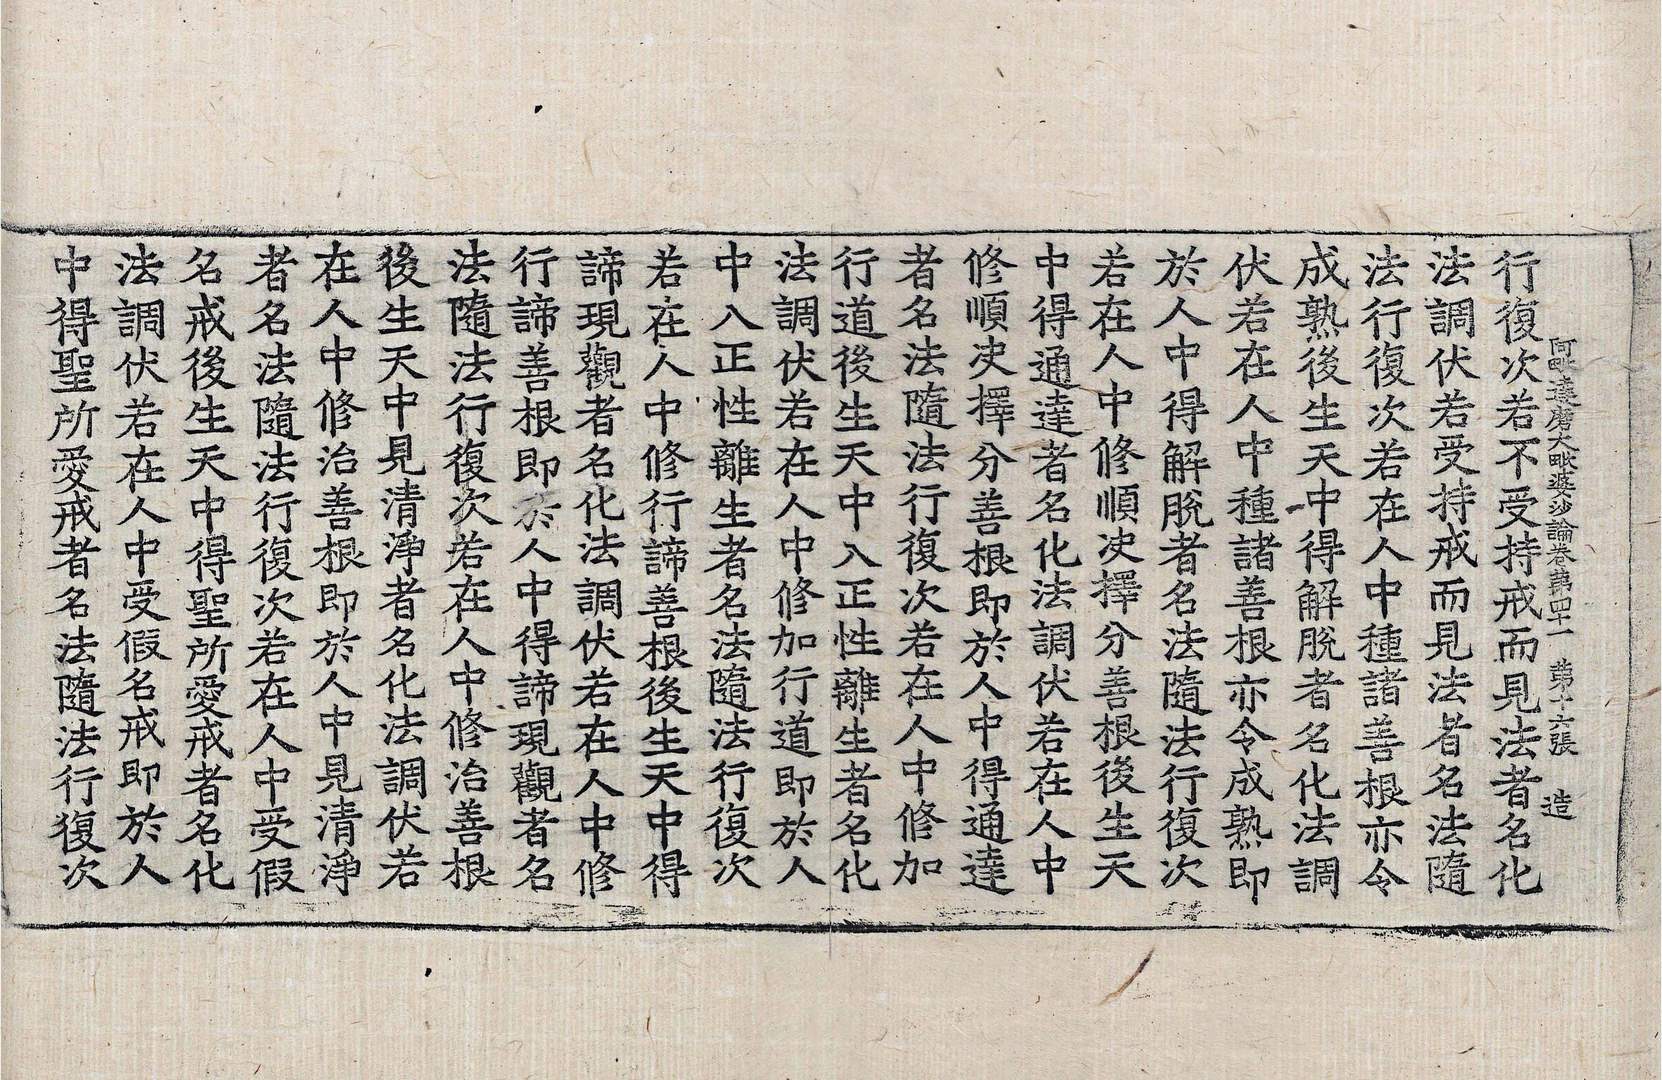 阿毗達磨大毗婆沙論卷苐四十一 苐十六張 造
行復次若不受持戒而見法者名化
法調伏若受持戒而見法者名法隨
法行復次若在人中種諸善根亦令
成熟後生天中得解脫者名化法調
伏若在人中種諸善根亦令成熟即
於人中得解脫者名法隨法行復次
若在人中修順決擇分善根後生天
中得通達者名化法調伏若在人中
修順決擇分善根即於人中得通達
者名法隨法行復次若在人中修加
行道後生天中入正性離生者名化
法調伏若在人中修加行道即於人
中入正性離生者名法隨法行復次
若在人中修行諦善根後生天中得
諦現觀者名化法調伏若在人中修
行諦善根即於人中得諦現觀者名
法隨法行復次若在人中修治善根
後生天中見清淨者名化法調伏若
在人中修治善根即於人中見清淨
者名法隨法行復次若在人中受假
名戒後生天中得聖所愛戒者名化
法調伏若在人中受假名戒即於人
中得聖所愛戒者名法隨法行復次